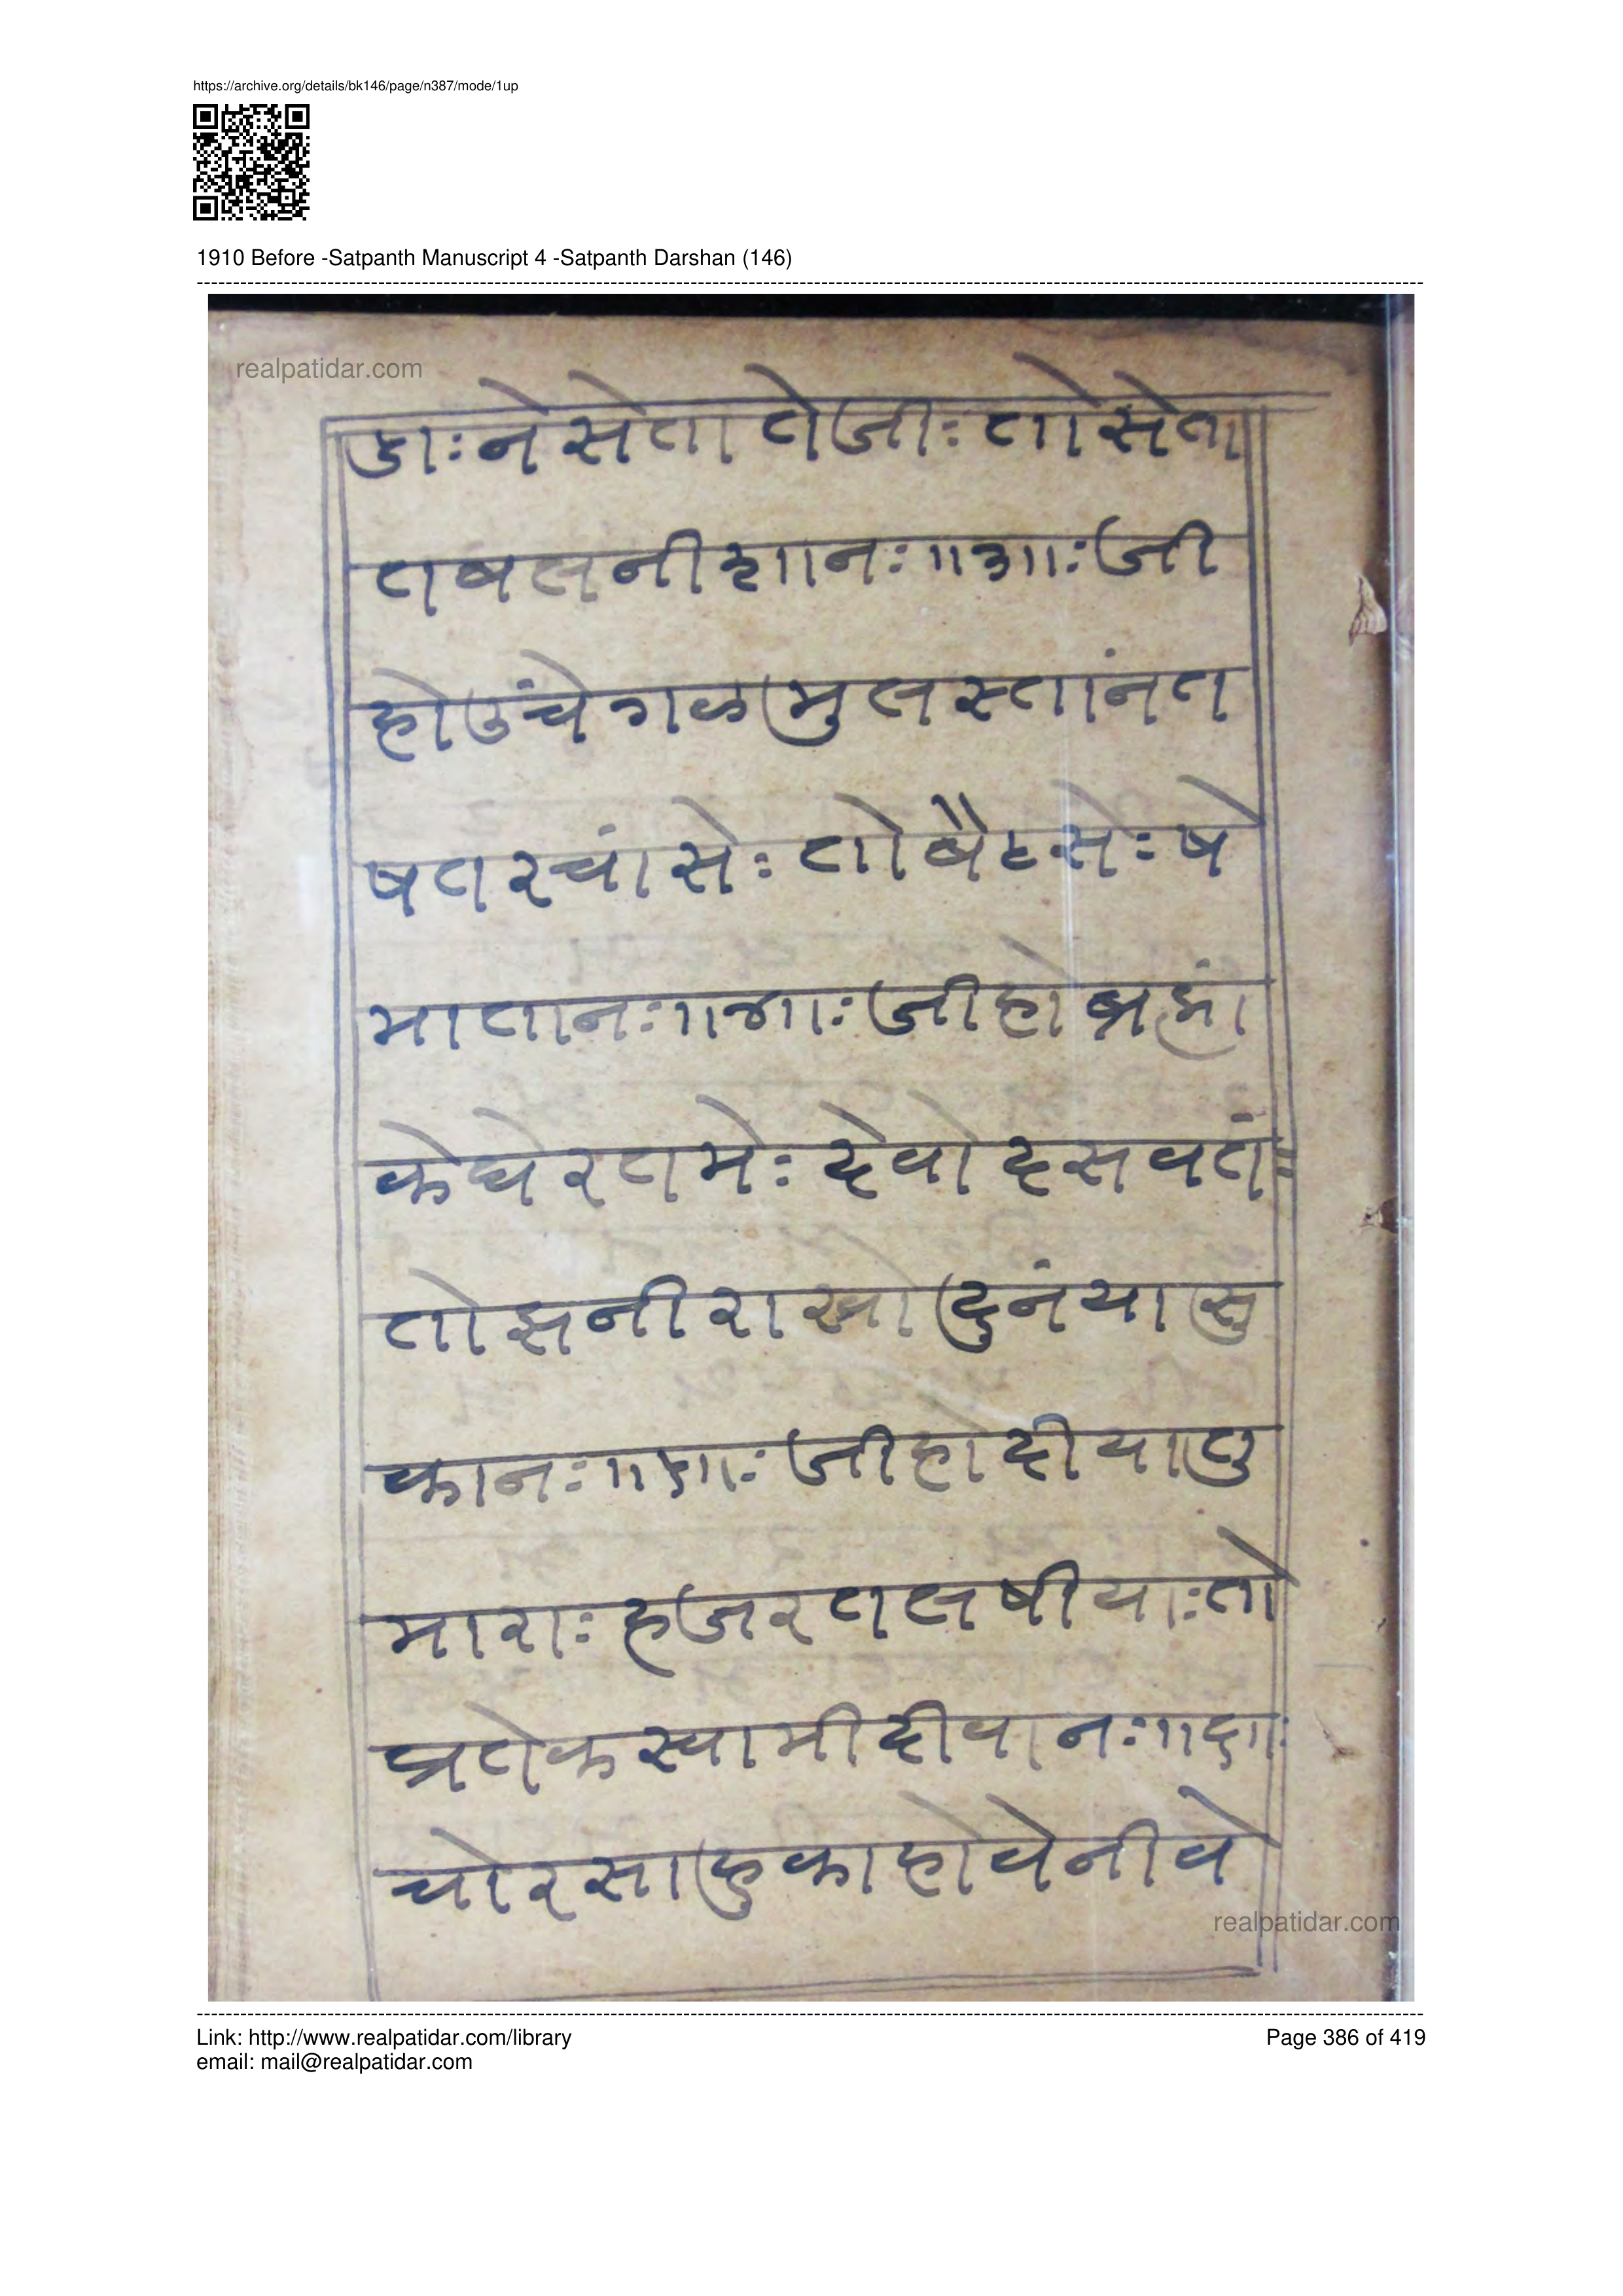 https://archive.org/details/bk146/page/n387/mode/1up
1910 Before -Satpanth Manuscript 4 -Satpanth Darshan (146)
realpatidar.com
डाः ने सेता तेजीः तो सेता
तषत नीशानः ॥३॥ः जी
हो उंचे गळ मुलस्तांन त
षत रचां सेः तो बैठसेः षे
मातानः ॥४॥ः जी हो ब्रह्मां
के घेर तमेः देवो दसवतं
तो झनी राखो दुनंया सु
कानः ॥५॥ः जी हो दीया लु
माराः हजरत लषीयाः तो
प्रतेक स्वामी दीवानः ॥६॥ः
चोर साहुका होवेनीवे
realpatidar.com
Link: http://www.realpatidar.com/library
Page 386 of 419
email: mail@realpatidar.com